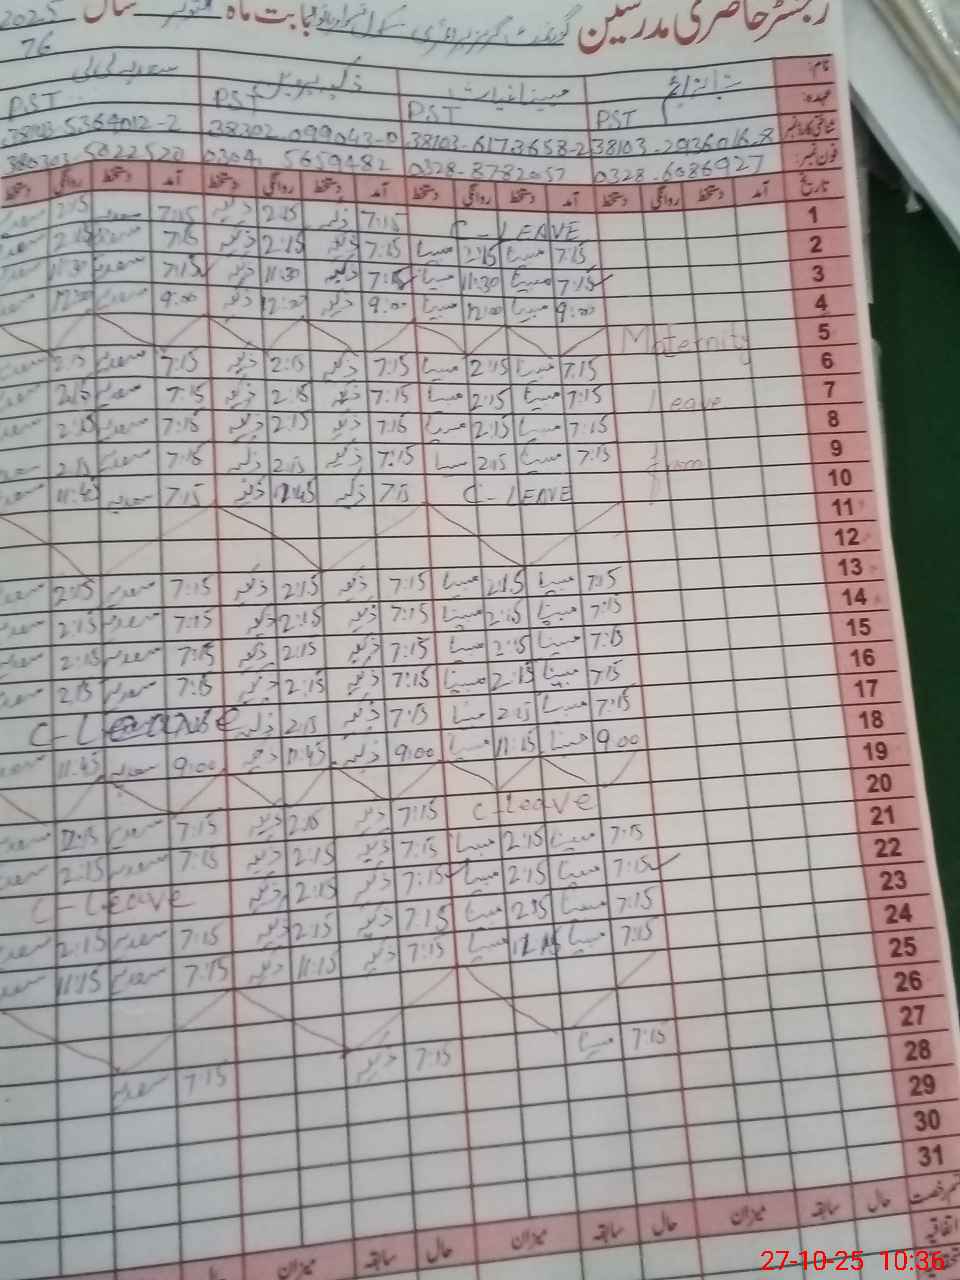 رجسٹر حاضری مدرسین گورنمنٹ گرلز پرائمری سکول بابت ماہ اکتوبر سال 2025
76
نام: مبینا غیاث ذکیہ پروین سعدیہ بی بی
عہدہ: PST PST PST PST
شناختی کارڈ نمبر 38103-2936016-8 38103-6173658-2 38302-099043-0 38103-5369012-2
فون نمبر: 0328-6086927 0328-8782057 0304 5659482 5022520
تاریخ آمد دستخط روانگی دستخط آمد دستخط روانگی دستخط آمد دستخط روانگی دستخط آمد دستخط روانگی دستخط
1 C-LEAVE 7:15 ذکیہ 2:15 ذکیہ 7:15 سعدیہ 2:15 سعدیہ
2 7:15 مبینا 2:15 مبینا 7:15 ذکیہ 2:15 ذکیہ 7:15 سعدیہ 2:15 سعدیہ
3 7:15 مبینا 11:30 مبینا 7:15 ذکیہ 11:30 ذکیہ 7:15 سعدیہ 11:30 سعدیہ
4 9:00 مبینا 12:00 مبینا 9:00 ذکیہ 12:00 ذکیہ 9:00 سعدیہ 12:00 سعدیہ
5 Maternity
6 7:15 مبینا 2:15 مبینا 7:15 ذکیہ 2:15 ذکیہ 7:15 سعدیہ 2:15 سعدیہ
7 Leave 7:15 مبینا 2:15 مبینا 7:15 ذکیہ 2:15 ذکیہ 7:15 سعدیہ 2:15 سعدیہ
8 7:15 مبینا 2:15 مبینا 7:15 ذکیہ 2:15 ذکیہ 7:15 سعدیہ 2:15 سعدیہ
9 from 7:15 مبینا 2:15 مبینا 7:15 ذکیہ 2:15 ذکیہ 7:15 سعدیہ 2:15 سعدیہ
10 C-LEAVE 7:15 ذکیہ 12:45 ذکیہ 7:15 سعدیہ 11:45 سعدیہ
11
12
13 7:15 مبینا 2:15 مبینا 7:15 ذکیہ 2:15 ذکیہ 7:15 سعدیہ 2:15 سعدیہ
14 7:15 مبینا 2:15 مبینا 7:15 ذکیہ 2:15 ذکیہ 7:15 سعدیہ 2:15 سعدیہ
15 7:15 مبینا 2:15 مبینا 7:15 ذکیہ 2:15 ذکیہ 7:15 سعدیہ 2:15 سعدیہ
16 7:15 مبینا 2:15 مبینا 7:15 ذکیہ 2:15 ذکیہ 7:15 سعدیہ 2:15 سعدیہ
17 7:15 مبینا 2:15 مبینا 7:15 ذکیہ 2:15 ذکیہ C-Leave
18 9:00 مبینا 11:15 مبینا 9:00 ذکیہ 11:45 ذکیہ 9:00 سعدیہ 11:45 سعدیہ
19
20 C-Leave 7:15 ذکیہ 2:15 ذکیہ 7:15 سعدیہ 2:15 سعدیہ
21 7:15 مبینا 2:15 مبینا 7:15 ذکیہ 2:15 ذکیہ 7:15 سعدیہ 2:15 سعدیہ
22 7:15 مبینا 2:15 مبینا 7:15 ذکیہ 2:15 ذکیہ C-Leave
23 7:15 مبینا 2:15 مبینا 7:15 ذکیہ 2:15 ذکیہ 7:15 سعدیہ 2:15 سعدیہ
24 7:15 مبینا 12:15 مبینا 7:15 ذکیہ 11:15 ذکیہ 7:15 سعدیہ 11:15 سعدیہ
25
26
27 7:15 مبینا 7:15 ذکیہ 7:15 سعدیہ
28
29
30
31
قسم رخصت حال سابقہ میزان حال سابقہ میزان حال سابقہ میزان
اتفاقیہ
27-10-25 10:36